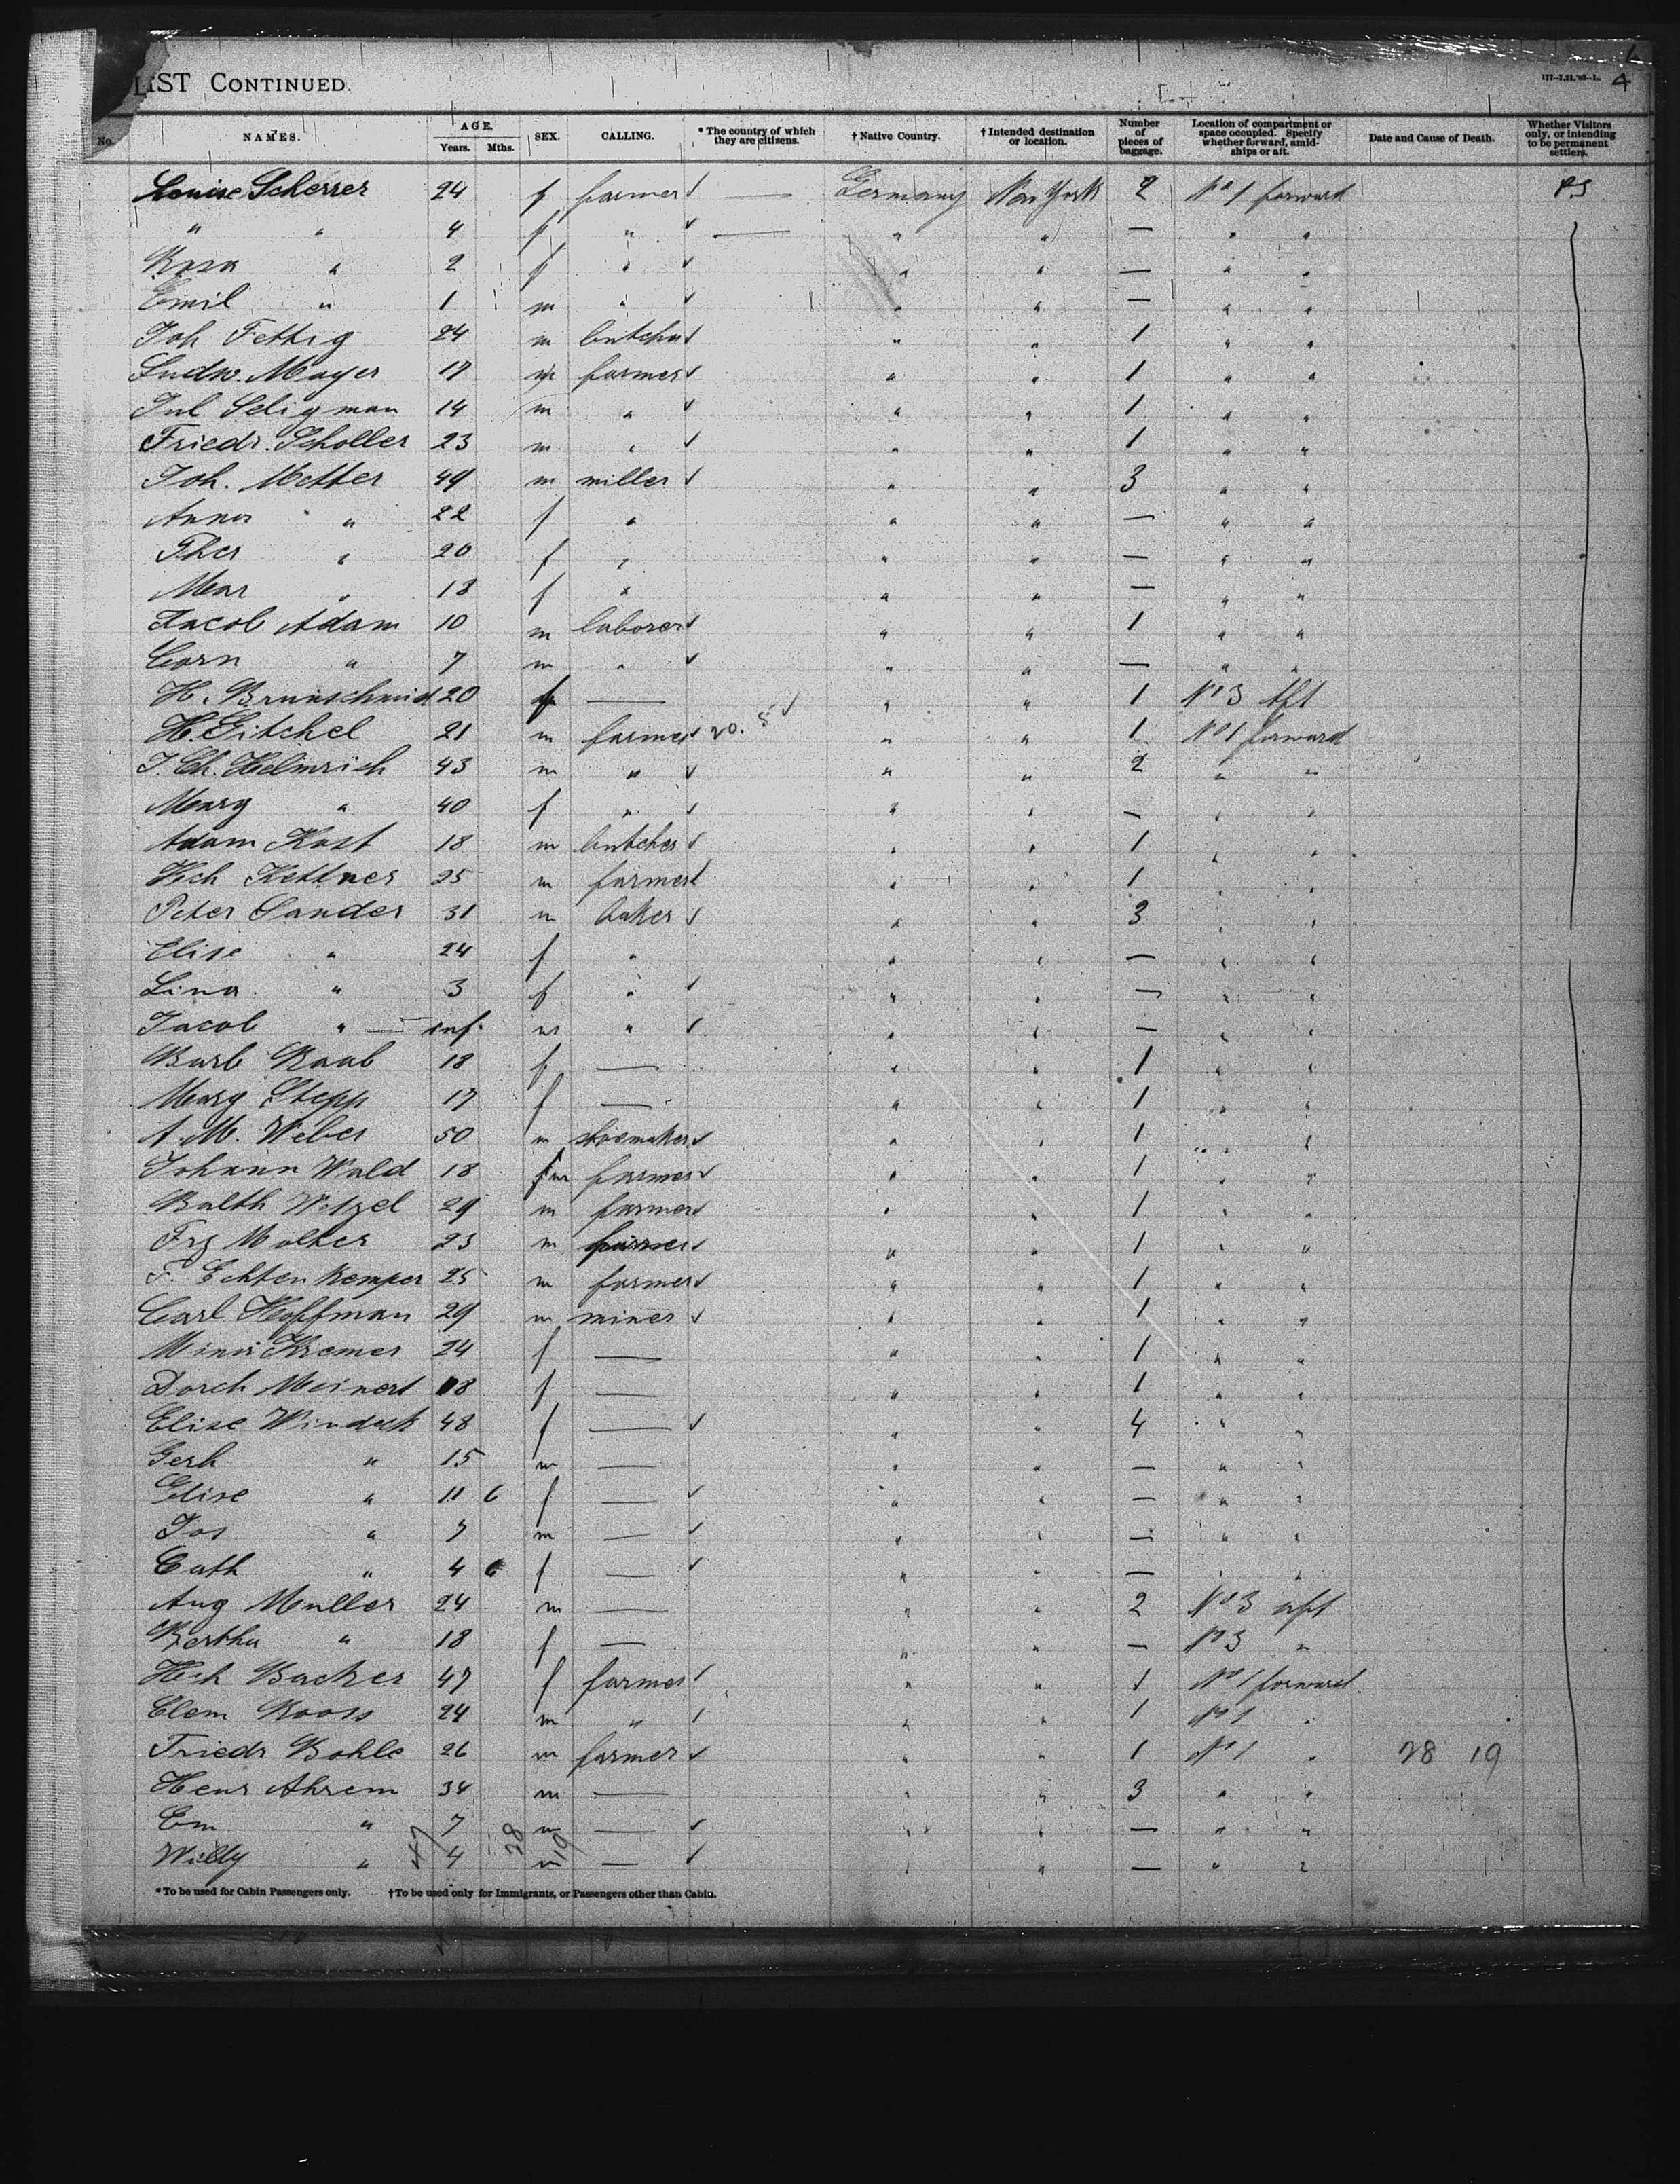 LIST CONTINUED. 177-7,21,'93-L. 4
No. NAMES. AGE. Years. Mths. SEX. CALLING. * The country of which they are citizens. † Native Country. † Intended destination or location. Number of pieces of baggage. Location of compartment or space occupied. Specify whether forward, amidships or aft. Date and Cause of Death. Whether Visitors only, or intending to be permanent settlers.
Louise Scherrer 24 f farmer ✓ — Germany New York 2 No 1 forward P.S
" " 4 f " ✓ — " " — " "
Rosa " 2 f " ✓ " " — " "
Emil " 1 m " ✓ " " — " "
Joh Fettig 24 m butcher ✓ " " 1 " "
Ludw. Mayer 17 m farmer ✓ " " 1 " "
Jul Seligman 14 m " ✓ " " 1 " "
Friedr. Scholler 23 m " ✓ " " 1 " "
Joh. Metter 49 m miller ✓ " " 3 " "
Anna " 22 f " " " — " "
Ther " 20 f " " " — " "
Mar " 18 f " " " — " "
Jacob Adam 10 m laborer ✓ " " 1 " "
Corn " 7 m " ✓ " " — " "
H. Brunschmid 20 f — " " 1 No 3 aft
H. Eitchel 21 m farmer ✓ 20. 5 ✓ " " 1 No 1 forward
J. Ch. Helmrich 43 m " ✓ " " 2 " "
Marg " 40 f " ✓ " " — " "
Adam Kost 18 m butcher ✓ " " 1 " "
Hch Kettner 25 m farmer ✓ " " 1 " "
Peter Sander 31 m baker ✓ " " 3 " "
Elise " 24 f " " " — " "
Lina " 3 f " ✓ " " — " "
Jacob " — inf. m " ✓ " " — " "
Barb Raab 18 f — " " 1 " "
Marg Stepp 17 f — " " 1 " "
A. M. Weber 50 m shoemaker ✓ " " 1 " "
Johann Wald 18 m farmer ✓ " " 1 " "
Balth Wetzel 29 m farmer ✓ " " 1 " "
Frz Molter 23 m farmer ✓ " " 1 " "
F. Echtenkemper 25 m farmer ✓ " " 1 " "
Carl Hoffman 29 m miner ✓ " " 1 " "
Mina Kremer 24 f — " " 1 " "
Dorch Meinert 18 f — " " 1 " "
Elise Windeck 48 f — ✓ " " 4 " "
Gerh " 15 m — " " — " "
Elise " 11 6 f — ✓ " " — " "
Jos " 7 m — ✓ " " — " "
Cath " 4 6 f — ✓ " " — " "
Aug Muller 24 m — " " 2 No 3 aft
Bertha " 18 f — " " — No 3 "
Hch Backer 47 f farmer ✓ " " 1 No 1 forward
Clem Rooss 24 m " ✓ " " 1 No 1 "
Friedr Bohle 26 m farmer ✓ " " 1 No 1 " 28 19
Henr Ahrem 34 m — " " 3 " "
Em " 7 m — ✓ " " — " "
Willy " 4 m — ✓ " " — " "
47 28 19
*To be used for Cabin Passengers only. †To be used only for Immigrants, or Passengers other than Cabin.